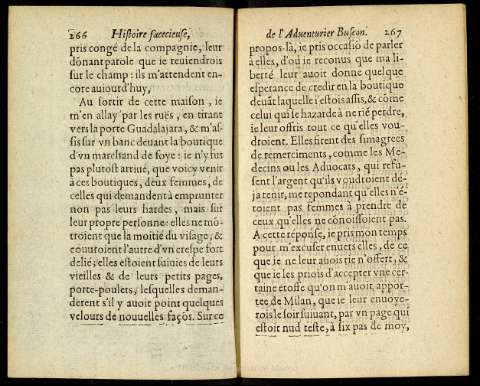 266 Histoire facecieuse,
pris congé de la compagnie, leur
dõnant parole que ie reuiendrois
sur le champ : ils m'attendent en-
core aujourd'huy,
Au sortir de cette maison, ie
m'en allay par les ruës, en tirant
vers la porte Guadalajara, & m'as-
sis sur vn banc deuant la boutique
d'vn marchand de soye : ie n'y fus
pas plutost arriué, que voicy venir
à ces boutiques, deux femmes, de
celles qui demandent à emprunter
non pas leurs hardes, mais sur
leur propre personne : elles ne mõ-
troient que la moitié du visage, &
couuroient l'autre d'vn crespe fort
delié ; elles estoient suiuies de leurs
vieilles & de leurs petits pages,
porte-poulets, lesquelles deman-
derent s'il y auoit point quelques
velours de nouuelles façõs. Sur ce
de l'Aduenturier Buscon. 267
propos-là, ie pris occasiõ de parler
à elles, d'où ie reconus que ma li-
berté leur auoit donné quelque
esperance de credit en la boutique
deuãt laquelle i'estois assis, & cõme
celui qui se hazarde à ne riẽ perdre,
ie leur offris tout ce qu'elles vou-
droient. Elles firent des simagrees
de remerciments, comme les Me-
decins ou les Aduocats, qui refu-
sent l'argent qu'ils voudroient déj-
ja tenir, me repondant qu'elles n'é-
toient pas femmes à prendre de
ceux qu'elles ne cõnoissoient pas.
A cette réponse, ie pris mon temps
pour m'excuser enuers elles, de ce
que ie ne leur auois riẽ n'offert, &
que ie les priois d'accepter vne cer-
taine étoffe qu'on m'auoit appor-
tée de Milan, que ie leur enuoye-
rois le soir suiuant, par vn page qui
estoit nud teste, à six pas de moy,